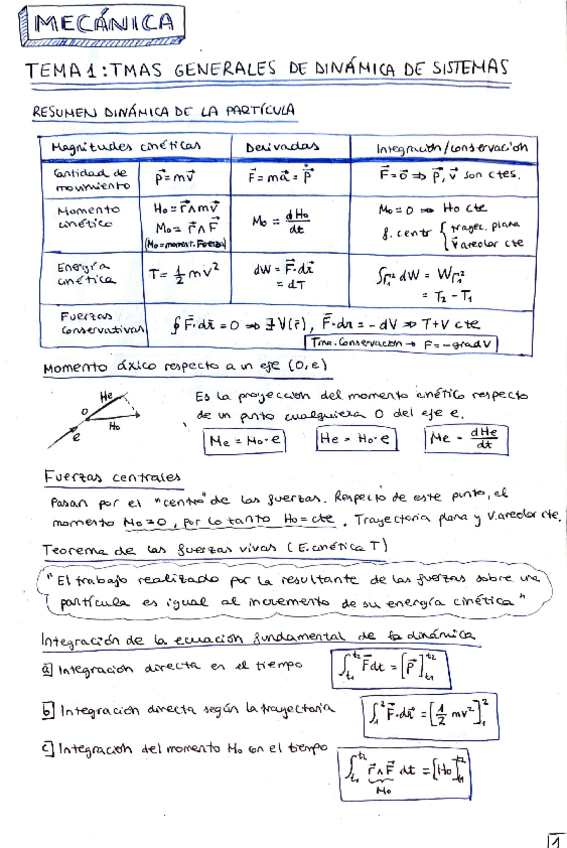 MECÁNICA
TEMA 1: TMAS GENERALES DE DINÁMICA DE SISTEMAS
RESUMEN DINÁMICA DE LA PARTÍCULA
Magnitudes cinéticas Derivadas Integración/conservación
Cantidad de movimiento p⃗=mv⃗ F⃗=ma⃗=p⃗̇ F⃗=0⃗ ⇒ p⃗, v⃗ son ctes.
Momento cinético Ho=r⃗∧mv⃗ Mo= dHo/dt Mo=0 ⇒ Ho cte
Mo= r⃗∧F⃗ f. centr { trayec. plana
(Mo=moment. Fuerza) v⃗ areolar cte
Energía cinética T= 1/2 mv² dW= F⃗·dr⃗ = dT ∫Γ₁^Γ₂ dW = W Γ₁^Γ₂
= T₂ - T₁
Fuerzas conservativas ∮F⃗·dr⃗ = 0 ⇒ ∃ V(r⃗), F⃗·dr = - dV ⇒ T+V cte
Tma. Conservación → F=-grad V
Momento áxico respecto a un eje (O,e)
He
O
Ho
e
Es la proyección del momento cinético respecto
de un punto cualquiera O del eje e.
Me = Mo·e He = Ho·e Me = dHe/dt
Fuerzas centrales
Pasan por el "centro" de las fuerzas. Respecto de este punto, el
momento Mo=0, por lo tanto Ho=cte. Trayectoria plana y V.areolar cte.
Teorema de las fuerzas vivas (E.cinética T)
"El trabajo realizado por la resultante de las fuerzas sobre una
partícula es igual al incremento de su energía cinética"
Integración de la ecuación fundamental de la dinámica
a] Integración directa en el tiempo ∫t₁^t₂ F⃗dt = [p⃗]t₁^t₂
b] Integración directa según la trayectoria ∫₁² F⃗·dr⃗ = [1/2 mv²]₁²
c] Integración del momento Mo en el tiempo
∫t₁^t₂ r⃗∧F⃗ dt = [Ho]t₁^t₂
Mo
1